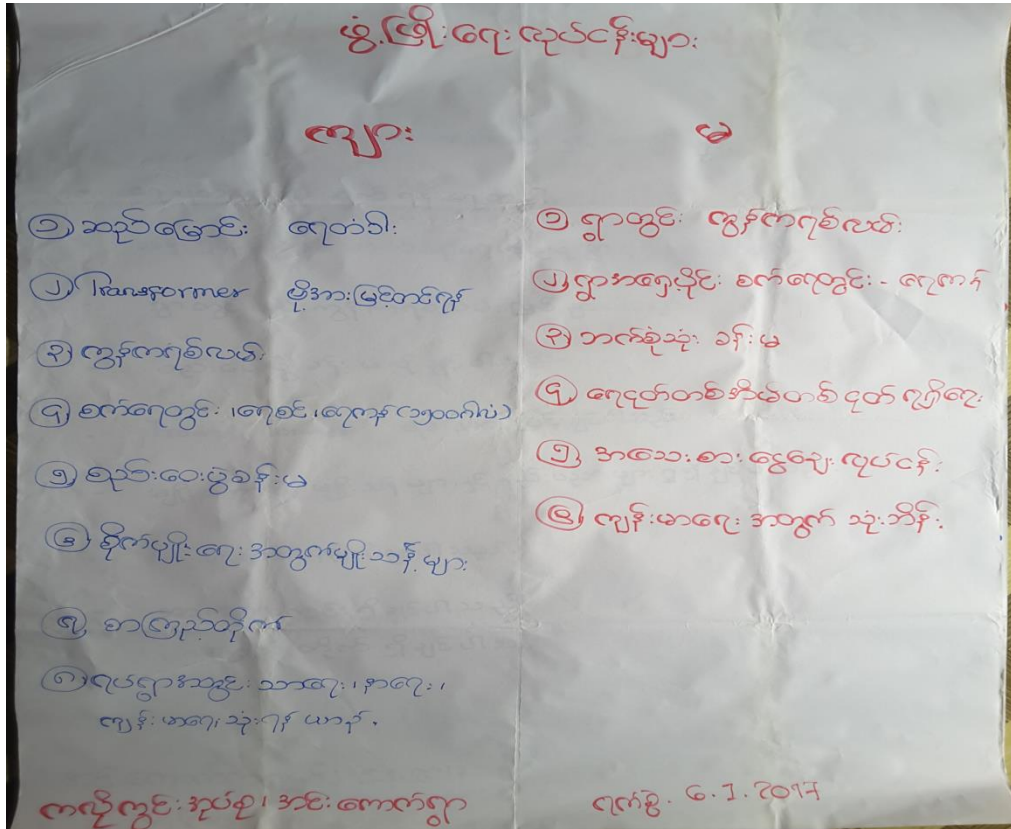 ဖွံ့ဖြိုးရေးလုပ်ငန်းများ
ကျား
မ
၁ ဆည်မြောင်း ရေတံခါး
၂ Transformer ဗို့အားမြှင့်တင်ရန်
၃ ကွန်ကရစ်လမ်း
၄ စက်ရေတွင်း ၊ ရေစင် ၊ ရေကန် (၁၅၀၀ဂါလံ)
၅ စည်းဝေးပွဲခန်းမ
၆ စိုက်ပျိုးရေးအတွက်မျိုးသန့်များ
၇ စာကြည့်တိုက်
၈ ရပ်ရွာအတွင်း သာရေး ၊ နာရေး ၊
ကျန်းမာရေး သုံးရန် ယာဉ်.
၁ ရွာတွင်း ကွန်ကရစ်လမ်း
၂ ရွာအရှေ့ပိုင်း စက်ရေတွင်း - ရေကန်
၃ ဘက်စုံသုံး ခန်းမ
၄ ရေဂုတ်တစ်အိမ်တစ်ဂုတ် ရရှိရေး
၅ အသေးစား ငွေချေး လုပ်ငန်း
၆ ကျန်းမာရေး အတွက် သုံးဘိန်း
ကလိုကွင်းအုပ်စု ၊ အင်းကောက်ရွာ
ရက်စွဲ. 6.1.2017